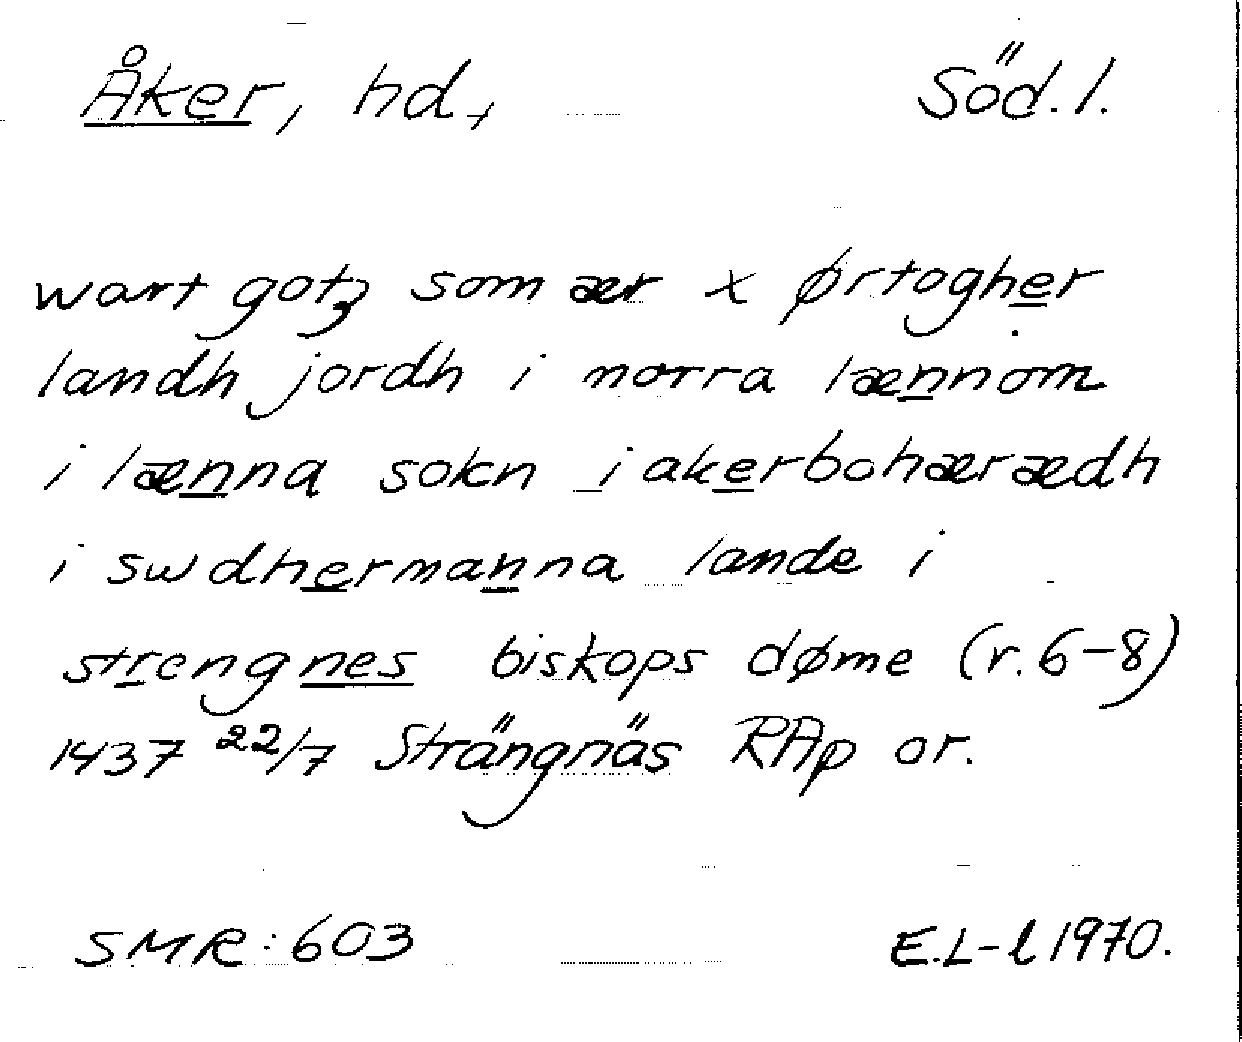 Åker, hd, Söd.l.
wart gotz som ær x ørtogher
landh jordh i norra lænnom
i lænna sokn i akerbohærædh
i swdhermanna lande i
strengnes biskops døme (r. 6-8)
1437 22/7 Strängnäs RAp or.
SMR: 603 E.L-l 1970.